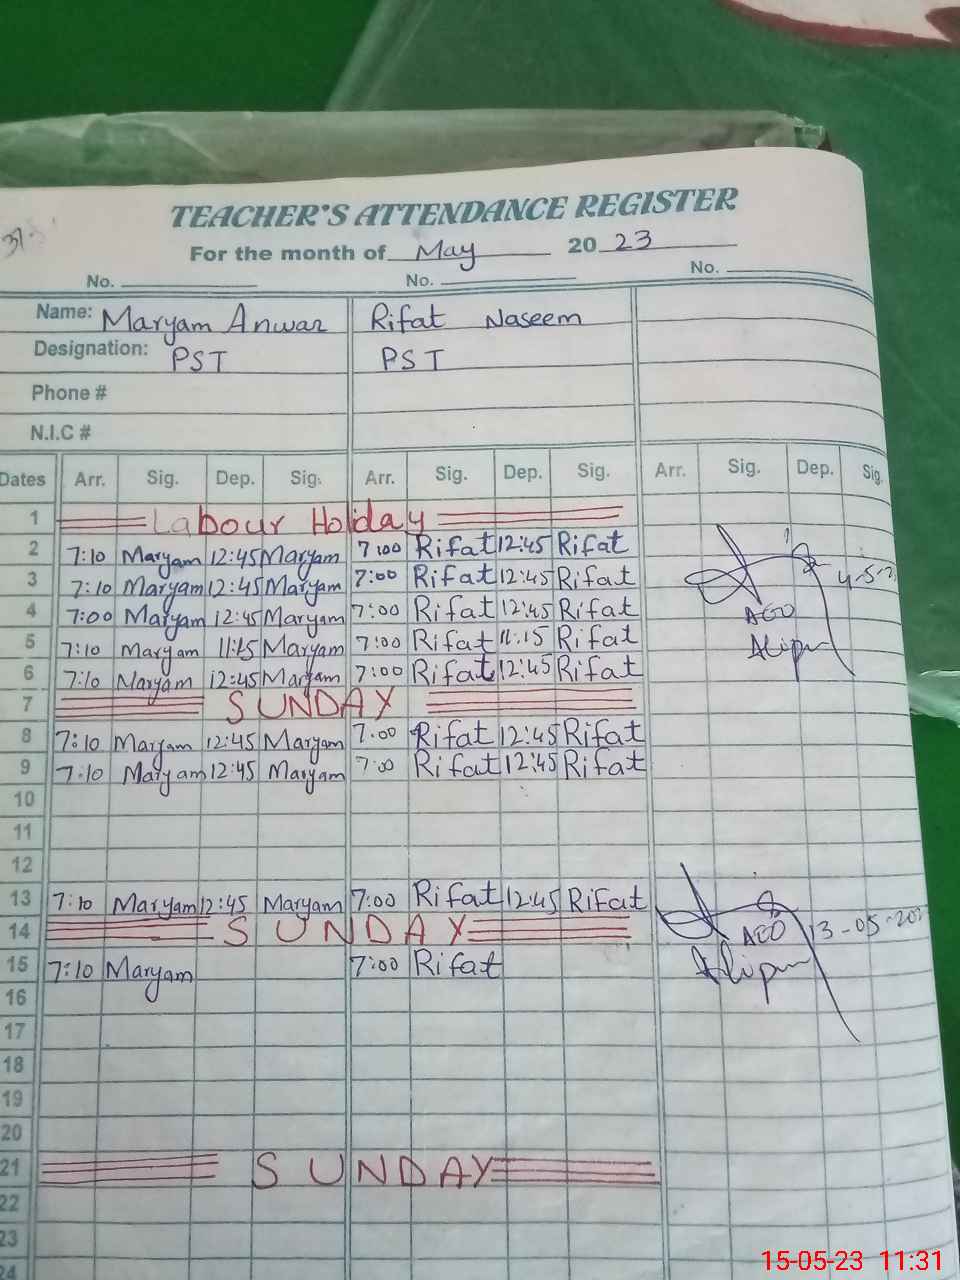 TEACHER'S ATTENDANCE REGISTER
For the month of May 2023
No. No. No.
Name: Maryam Anwar Rifat Naseem
Designation: PST PST
Phone #
N.I.C #
Dates Arr. Sig. Dep. Sig. Arr. Sig. Dep. Sig. Arr. Sig. Dep. Sig.
1 Labour Holiday
2 7:10 Maryam 12:45 Maryam 7:00 Rifat 12:45 Rifat
3 7:10 Maryam 12:45 Maryam 7:00 Rifat 12:45 Rifat 4-5-2
4 7:00 Maryam 12:45 Maryam 7:00 Rifat 12:45 Rifat AEO
5 7:10 Maryam 11:15 Maryam 7:00 Rifat 11:15 Rifat Alipur
6 7:10 Maryam 12:45 Maryam 7:00 Rifat 12:45 Rifat
7 SUNDAY
8 7:10 Maryam 12:45 Maryam 7:00 Rifat 12:45 Rifat
9 7:10 Maryam 12:45 Maryam 7:00 Rifat 12:45 Rifat
10
11
12
13 7:10 Maryam 12:45 Maryam 7:00 Rifat 12:45 Rifat
14 SUNDAY AEO 13-05-202
15 7:10 Maryam 7:00 Rifat Alipur
16
17
18
19
20
21 SUNDAY
22
23
24
15-05-23 11:31